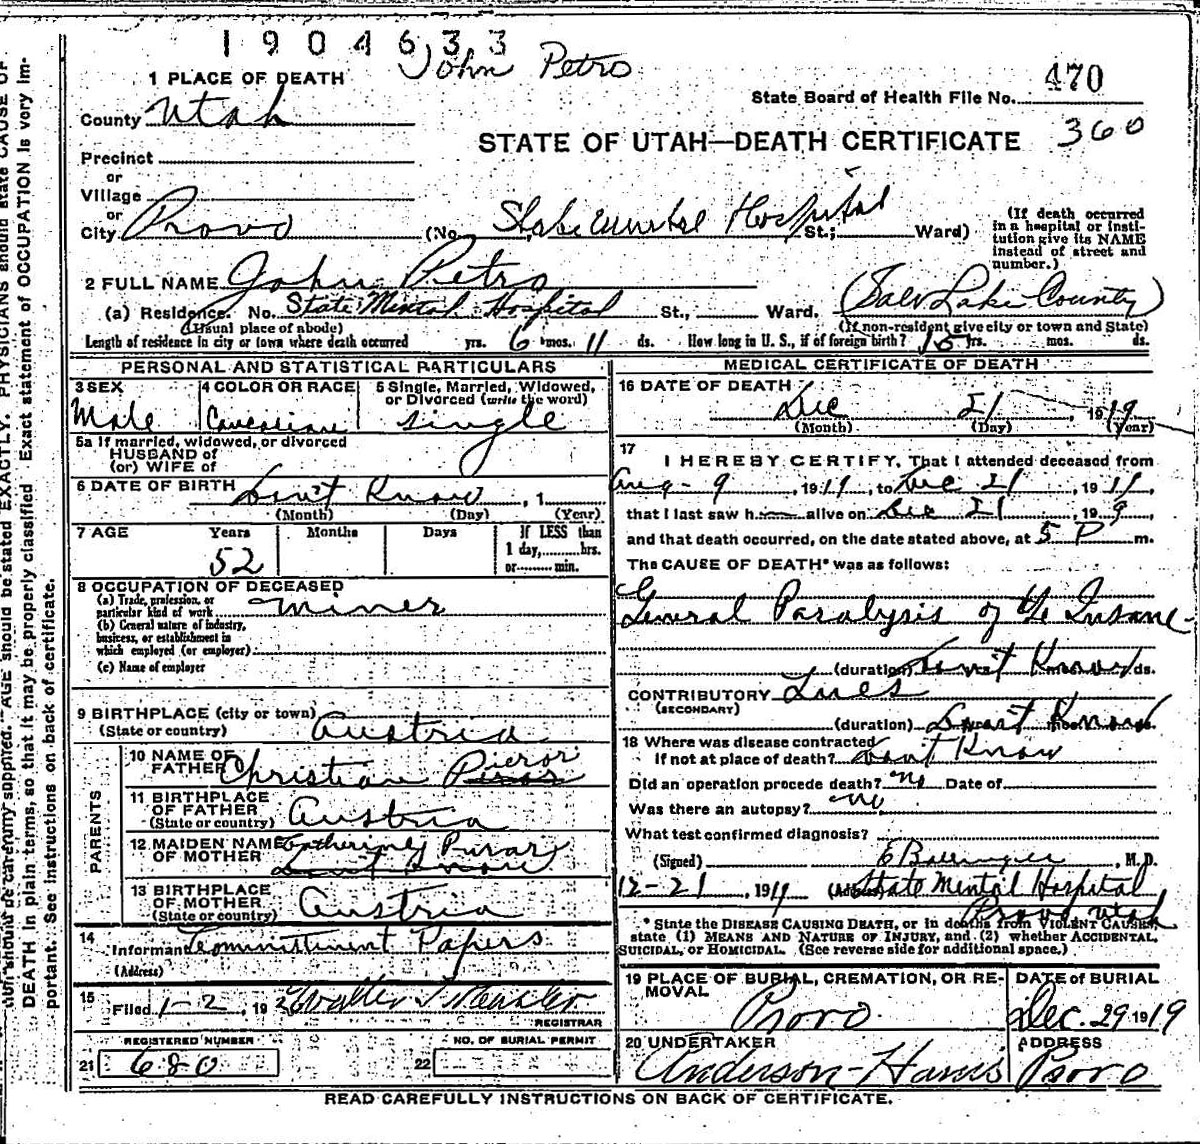 1904633
John Petro
1 PLACE OF DEATH
470
State Board of Health File No.
County Utah
STATE OF UTAH—DEATH CERTIFICATE 360
Precinct
or
Village
or
City Provo (No. State Mental Hospital St.; Ward)
(If death occurred in a hospital or institution give its NAME instead of street and number.)
2 FULL NAME John Petro
(a) Residence. No. State Mental Hospital St., Ward. (Salt Lake County)
(Usual place of abode) (If non-resident give city or town and State)
Length of residence in city or town where death occurred yrs. 6 mos. 11 ds. How long in U. S., if of foreign birth? 15 yrs. mos. ds.
PERSONAL AND STATISTICAL PARTICULARS
3 SEX
Male
4 COLOR OR RACE
Caucasian
5 Single, Married, Widowed, or Divorced (write the word)
Single
5a If married, widowed, or divorced
HUSBAND of
(or) WIFE of
6 DATE OF BIRTH Don't Know, 1
(Month) (Day) (Year)
7 AGE Years Months Days If LESS than
1 day, hrs.
or min.
52
8 OCCUPATION OF DECEASED
(a) Trade, profession, or
particular kind of work Miner
(b) General nature of industry,
business, or establishment in
which employed (or employer)
(c) Name of employer
9 BIRTHPLACE (city or town)
(State or country) Austria
PARENTS
10 NAME OF
FATHER Christian
11 BIRTHPLACE
OF FATHER
(State or country) Austria
12 MAIDEN NAME
OF MOTHER Catherine
Don't Know
13 BIRTHPLACE
OF MOTHER
(State or country) Austria
14
Informant Committment Papers
(Address)
15
Filed 1-2, 192 Walter T
REGISTRAR
REGISTERED NUMBER
21 680
NO. OF BURIAL PERMIT
22
MEDICAL CERTIFICATE OF DEATH
16 DATE OF DEATH
Dec 21, 1919
(Month) (Day) (Year)
17
I HEREBY CERTIFY, That I attended deceased from
Aug - 9, 1919, to Dec 21, 1919,
that I last saw h alive on Dec 21, 199,
and that death occurred, on the date stated above, at 5 P m.
The CAUSE OF DEATH* was as follows:
General Paralysis of the Insane
(duration) Don't Know ds.
CONTRIBUTORY Lues
(SECONDARY)
(duration) Don't Know
18 Where was disease contracted
if not at place of death? Don't Know
Did an operation precede death? no Date of
Was there an autopsy? no
What test confirmed diagnosis?
(Signed) E, M.D.
12-21, 1919 (Address) State Mental Hospital
Provo Utah
* State the DISEASE CAUSING DEATH, or in deaths from VIOLENT CAUSES,
state (1) MEANS AND NATURE OF INJURY, and (2) whether ACCIDENTAL,
SUICIDAL, or HOMICIDAL. (See reverse side for additional space.)
19 PLACE OF BURIAL, CREMATION, OR REMOVAL
Provo
DATE OF BURIAL
Dec. 29 1919
20 UNDERTAKER
Anderson-Harris
ADDRESS
Provo
READ CAREFULLY INSTRUCTIONS ON BACK OF CERTIFICATE.
AGE should be stated EXACTLY. PHYSICIANS should state CAUSE OF
DEATH in plain terms, so that it may be properly classified. Exact statement of OCCUPATION is very im-
portant. See instructions on back of certificate.